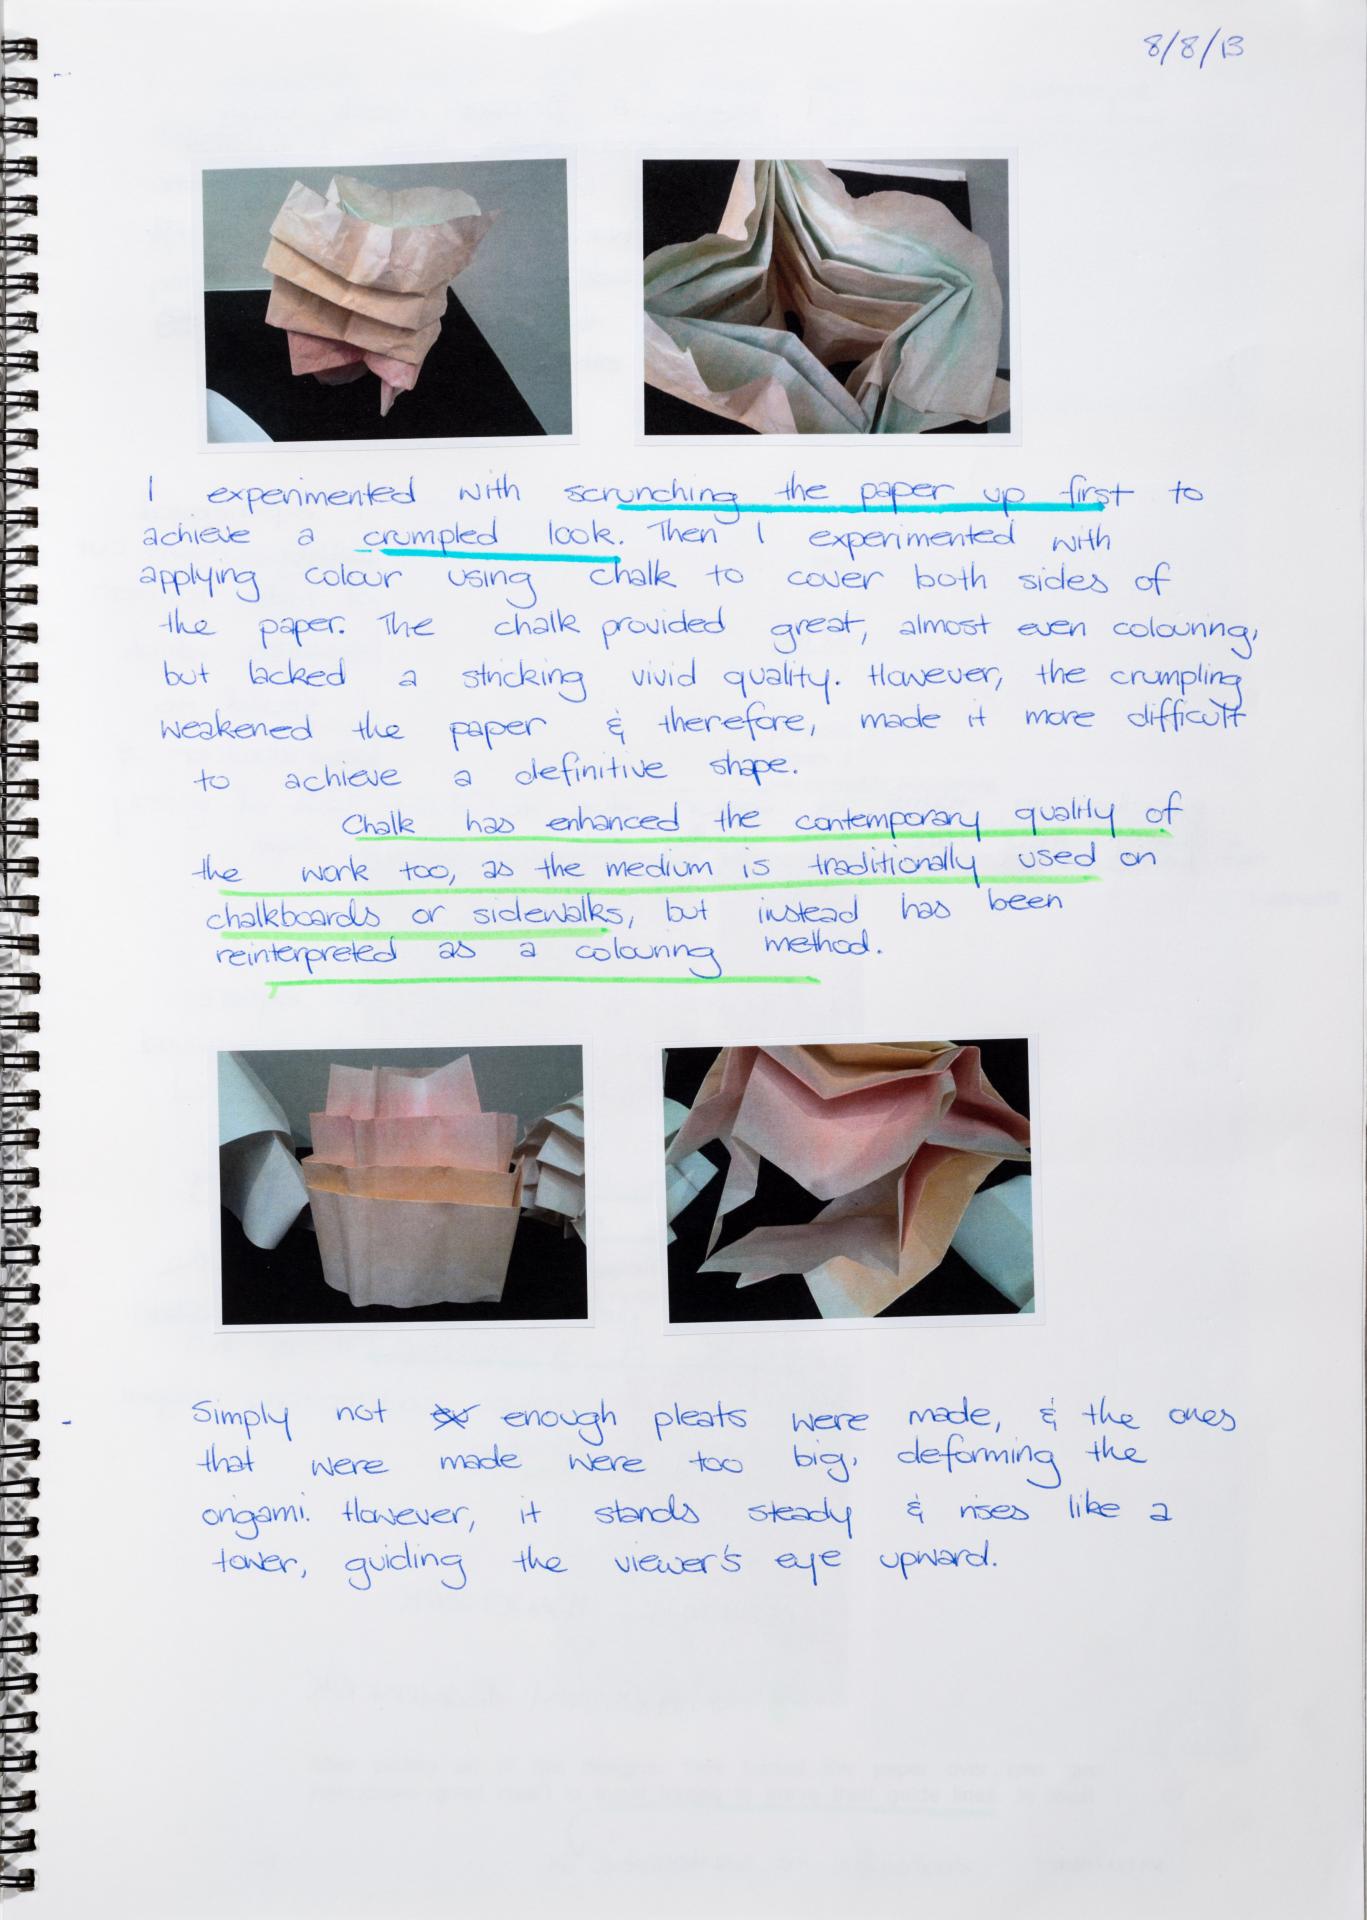 8/8/13
I experimented with scrunching the paper up first to
achieve a crumpled look. Then I experimented with
applying colour using chalk to cover both sides of
the paper. The chalk provided great, almost even colouring,
but lacked a stricking vivid quality. However, the crumpling
weakened the paper & therefore, made it more difficult
to achieve a definitive shape.
Chalk has enhanced the contemporary quality of
the work too, as the medium is traditionally used on
chalkboards or sidewalks, but instead has been
reinterpreted as a colouring method.
Simply not enough pleats were made, & the ones
that were made were too big, deforming the
origami. However, it stands steady & rises like a
tower, guiding the viewer's eye upward.